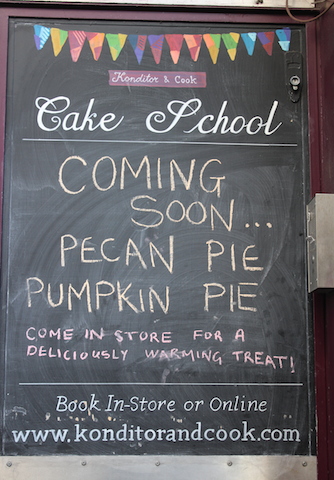 Konditor & Cook
Cake School
COMING
SOON...
PECAN PIE
PUMPKIN PIE
COME IN STORE FOR A
DELICIOUSLY WARMING TREAT!
Book In-Store or Online
www.konditorandcook.com